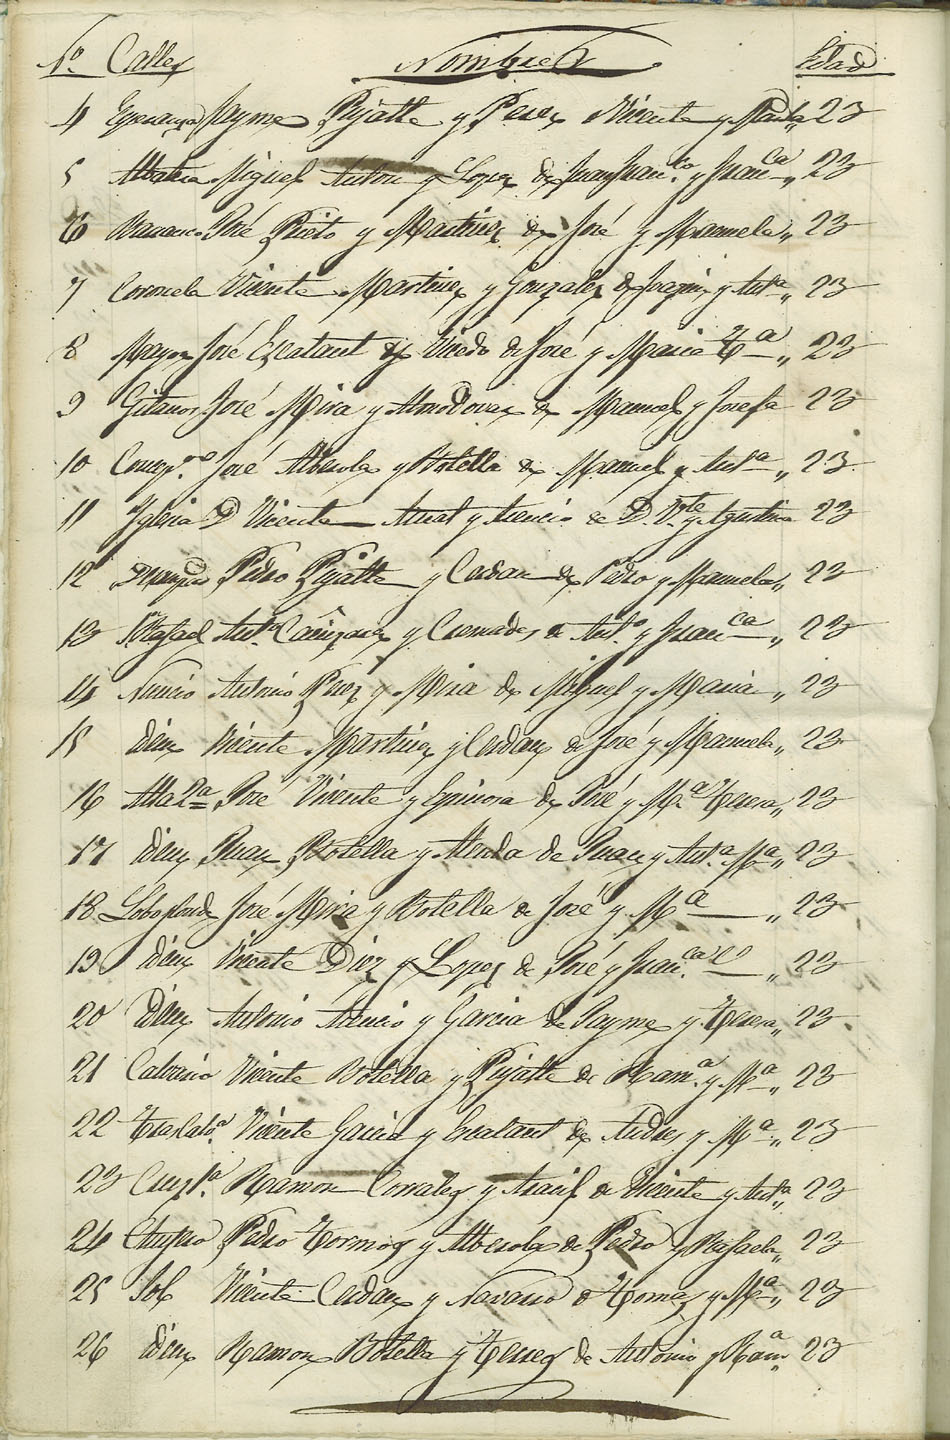 Nº. Calles Nombres Edad
4 Esperanza Jayme Pujalte y Perez Vicente y Maria 23
5 Miguel Anton y Lopez de Juan Fran.co y Fran.ca „ 23
6 Barranco José Prieto y Martinez de José y Manuela „ 23
7 Coronela Vicente Martinez y Gonzalez de Joaquin y Ant.a „ 23
8 Mayor José Escalant y Vicedo de José y Maria T.a „ 23
9 Gitanos José Mira y Almodovar de Manuel y Josefa 23
10 José Alberola y Botella de Manuel y Ant.a „ 23
11 Yglesia D Vicente y Asencio de D. V.te y Agustina 23
12 Pedro Pujalte y Cerdan de Pedro y Manuela „ 23
13 S. Rafael Ant.o Cañizares y Cremades de Ant.o y Fran.ca „ 23
14 Nuncio Antonio Perez y Mira de Miguel y Maria „ 23
15 Idem Vicente Martinez y Cerdan de José y Manuela „ 23
16 José Vicente y Espinosa de José y M.a Teresa „ 23
17 Idem Juan Botella y de Juan y Ant.a M.a „ 23
18 José Mira y Botella de José y M.a „ 23
19 Idem Vicente Diez y Lopez de José y Fran.ca „ 23
20 Idem Antonio Asencio y Garcia de Jayme y Teresa „ 23
21 Calvario Vicente Botella y Pujalte de Ram.a y M.a „ 23
22 Vicente Garcia y Escalant de Andres y M.a „ 23
23 Ramon Corrales y de Vicente y Ant.a „ 23
24 Pedro Tormos y Alberola de Pedro y Rafaela „ 23
25 Sol Vicente Cerdan y Navarro de Tomas y M.a „ 23
26 Idem Ramon Botella y de Antonio y Ram.a „ 23